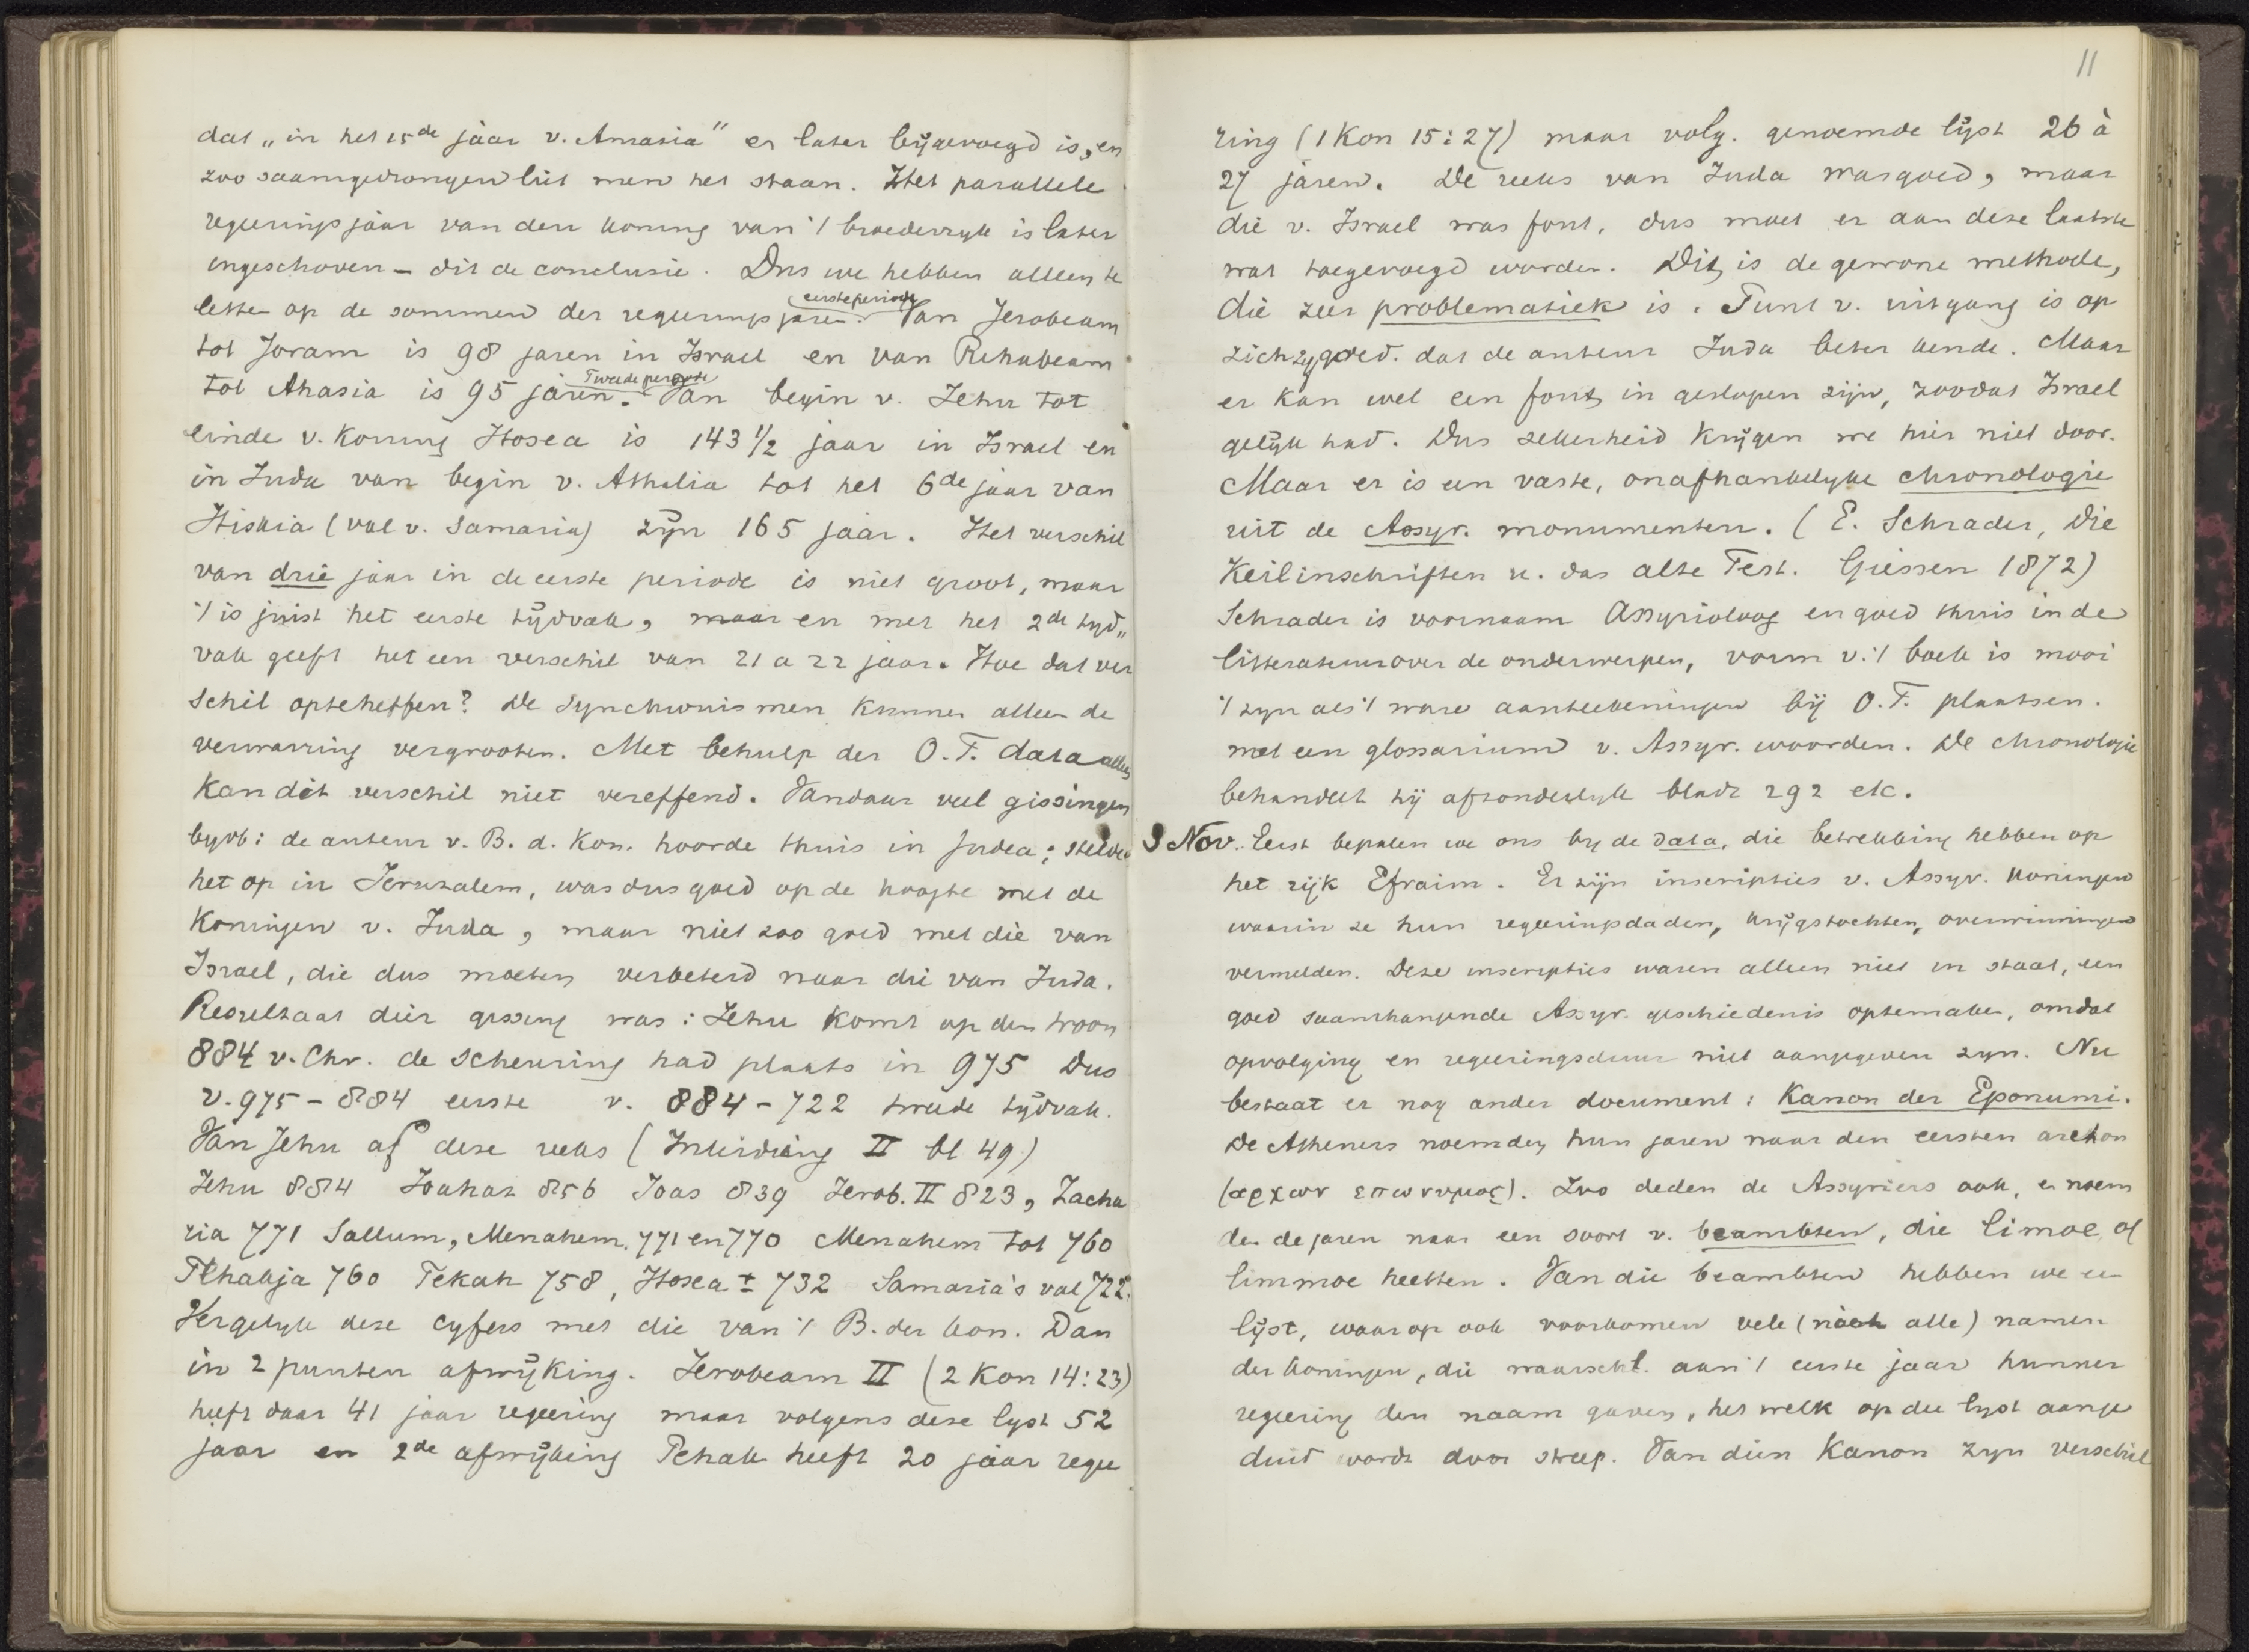 dat „in het 15de jaar v. Amasia" er later bijgevoegd is, en
zoo saamgedrongen liet men het staan. Het parallele
regeeringsjaar van den koning van 't broederryk is later
ingeschoven – dit de conclusie. Dus we hebben alleen te
eerste periode
letten op de sommen der regeeringsjaren. Van Jerobeam
tot Joram is 98 jaren in Israel en van Rehabeam
Tweede periode
tot Ahasia is 95 jaren. Van begin v. Jehu tot
einde v. Koning Hosea is 143 1/2 jaar in Israel en
in Juda van begin v. Athalia tot het 6de jaar van
Hiskia (val v. Samaria) zyn 165 jaar. Het verschil
van drie jaar in de eerste periode is niet groot, maar
't is juist het eerste tijdvak, maar en met het 2de tyd„
vak geeft het een verschil van 21 a 22 jaar. Hoe dat ver
schil optcheffen? De Synchronismen kunnen alleen de
verwarring vergrooten. Met behulp der O.T. data alleen
kan dit verschil niet vereffend. Vandaar veel gissingen
byvb: de auteur v. B. d. Kon. hoorde thuis in Judea; stelde
het op in Jeruzalem, was dus goed op de hoogte met de
Koningen v. Juda, maar niet zoo goed met die van
Israel, die dus moeten verbeterd naar die van Juda.
Resultaat dier gissing was: Jehu komt op den troon
884 v. Chr. de scheuring had plaats in 975 Dus
v. 975 – 884 eerste v. 884 – 722 tweede tijdvak.
Van Jehu af deze reeks (Inleiding II bl 49)
Jehu 884 Joahaz 856 Joas 839 Jerob. II 823, Zacha
ria 771 Sallum, Menahem. 771 en 770 Menahem tot 760
Pekahja 760 Pekah 758, Hosea ± 732 Samaria's val 722.
Vergelyk deze cyfers met die van 't B. der Kon. Dan
in 2 punten afwijking. Jerobeam II (2 Kon 14:23)
heeft daar 41 jaar regeering maar volgens deze lyst 52
jaar en 2de afwijking Pekah heeft 20 jaar regee
11
ring (1 Kon 15:27) maar volg. genoemde lijst 26 à
27 jaren. De reeks van Juda was goed, maar
die v. Israel was fout, dus moet er aan deze laatste
wat toegevoegd worden. Dit is de gewone methode,
die zeer problematiek is. Punt v. uitgang is op
zichzy goed. dat de auteur Juda beter kende. Maar
er kan wel een fout in geslopen zijn, zoodat Israel
gelijk had. Dus zekerheid krijgen we hier niet door.
Maar er is een vaste, onafhankelyke chronologie
uit de Assyr. monumenten. (E. Schrader, Die
Keilinschriften u. das alte Test. Giessen 1872)
Schrader is voornaam Assyrioloog en goed thuis in de
litteratuur over de onderwerpen, vorm v. 't boek is mooi
't zyn als 't ware aanteekeningen bij O.T. plaatsen.
met een glossarium v. Assyr. woorden. De chronologie
behandelt hij afzonderlyk bladz 292 etc.
3 Nov. Eerst bepalen we ons by de data, die betrekking hebben op
het rijk Efraim. Er zijn inscripties v. Assyr. Koningen
waarin ze hun regeeringsdaden, krijgstochten, overwinningen
vermelden. Deze inscripties waren alleen niet in staat, een
goed saamhangende Assyr. geschiedenis optemaken, omdat
opvolging en regeeringsduur niet aangegeven zyn. Nu
bestaat er nog ander document: Kanon der Eponumi.
De Atheners noemden hun jaren naar den eersten archon
(αρχων επωνυμος). Zoo deden de Assyriers ook, en noem
den de jaren naar een soort v. beambten, die limoe of
limmoe heetten. Van die beambten hebben we een
lijst, waarop ook voorkomen vele (noch alle) namen
der koningen, die waarschl. aan 't eerste jaar hunner
regeering den naam gaven, het welk op die lyst aange
duid wordt door streep. Van dien Kanon zyn verschil